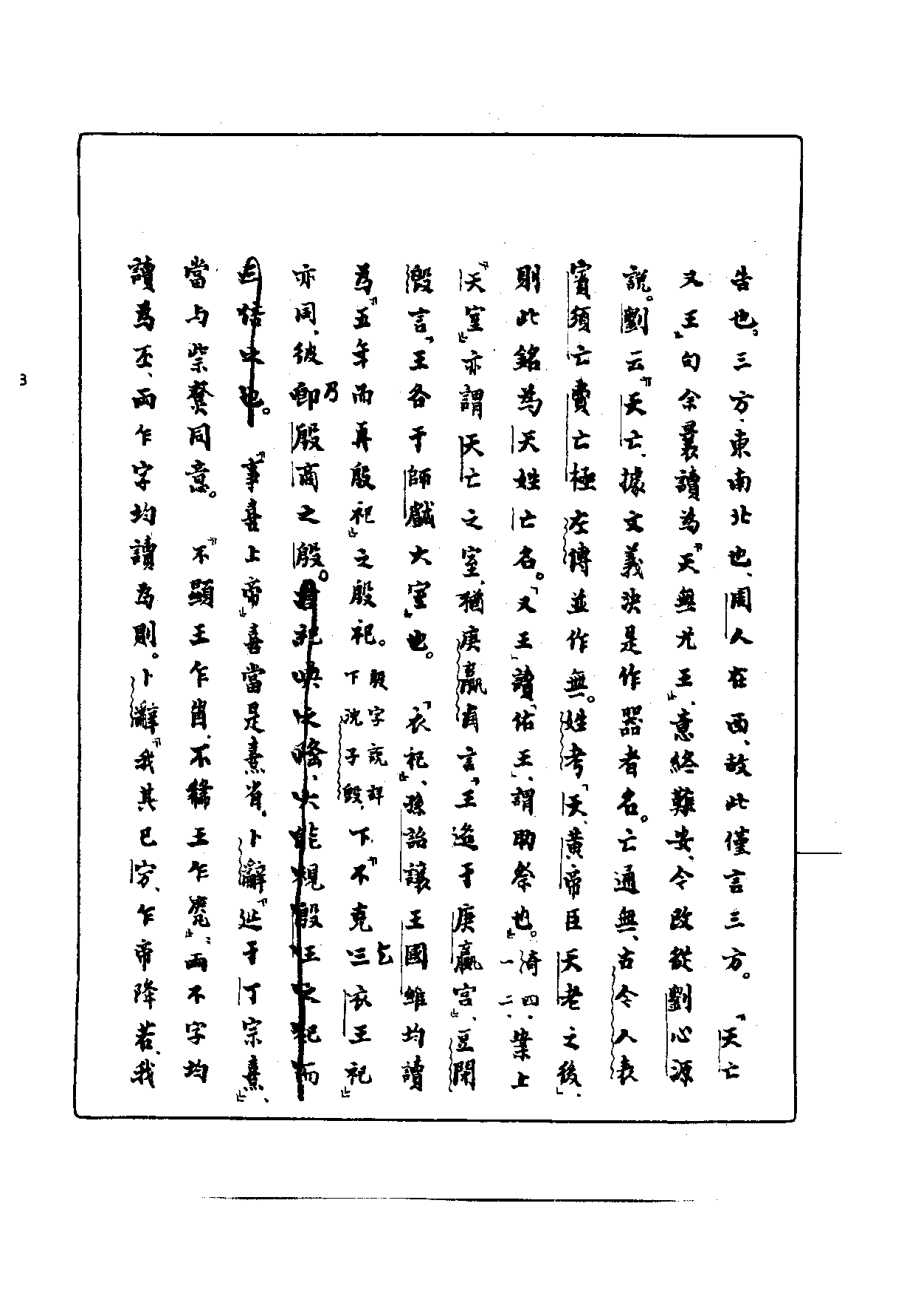 告也。三方、東南北也、周人在西、故此僅言三方。『天亡
又王』句余曩讀為『天無尤王』、意終難安、今改從劉心源
說。劉云『天亡、據文義決是作器者名。亡通無、古今人表
賓須亡費亡極左傳並作無。姓考「天、黃帝臣天老之後」、
則此銘為天姓亡名。「又王」讀「佑王」、謂助祭也。』奇四、一二、 案上
『天室』亦謂天亡之室、猶庚嬴卣言『王逄于庚嬴宮』、豆閉
𣪘言『王各于師戲大室』也。 『衣祀』、孫詒讓王國維均讀
為『五年而再殷祀』之殷祀。殷字說詳下沈子𣪘、 下『不克三衣王祀』
乞
亦同、彼卽殷商之殷。
乃
也。 『事喜上帝』喜當是熹省。卜辭『延于丁宗熹』、
當与祡尞同意。 『不顯王乍省、不𧙃王乍𢊾』、兩不字均
讀為丕、兩乍字均讀為則。卜辭『我其已㝃、乍帝降若、我
3